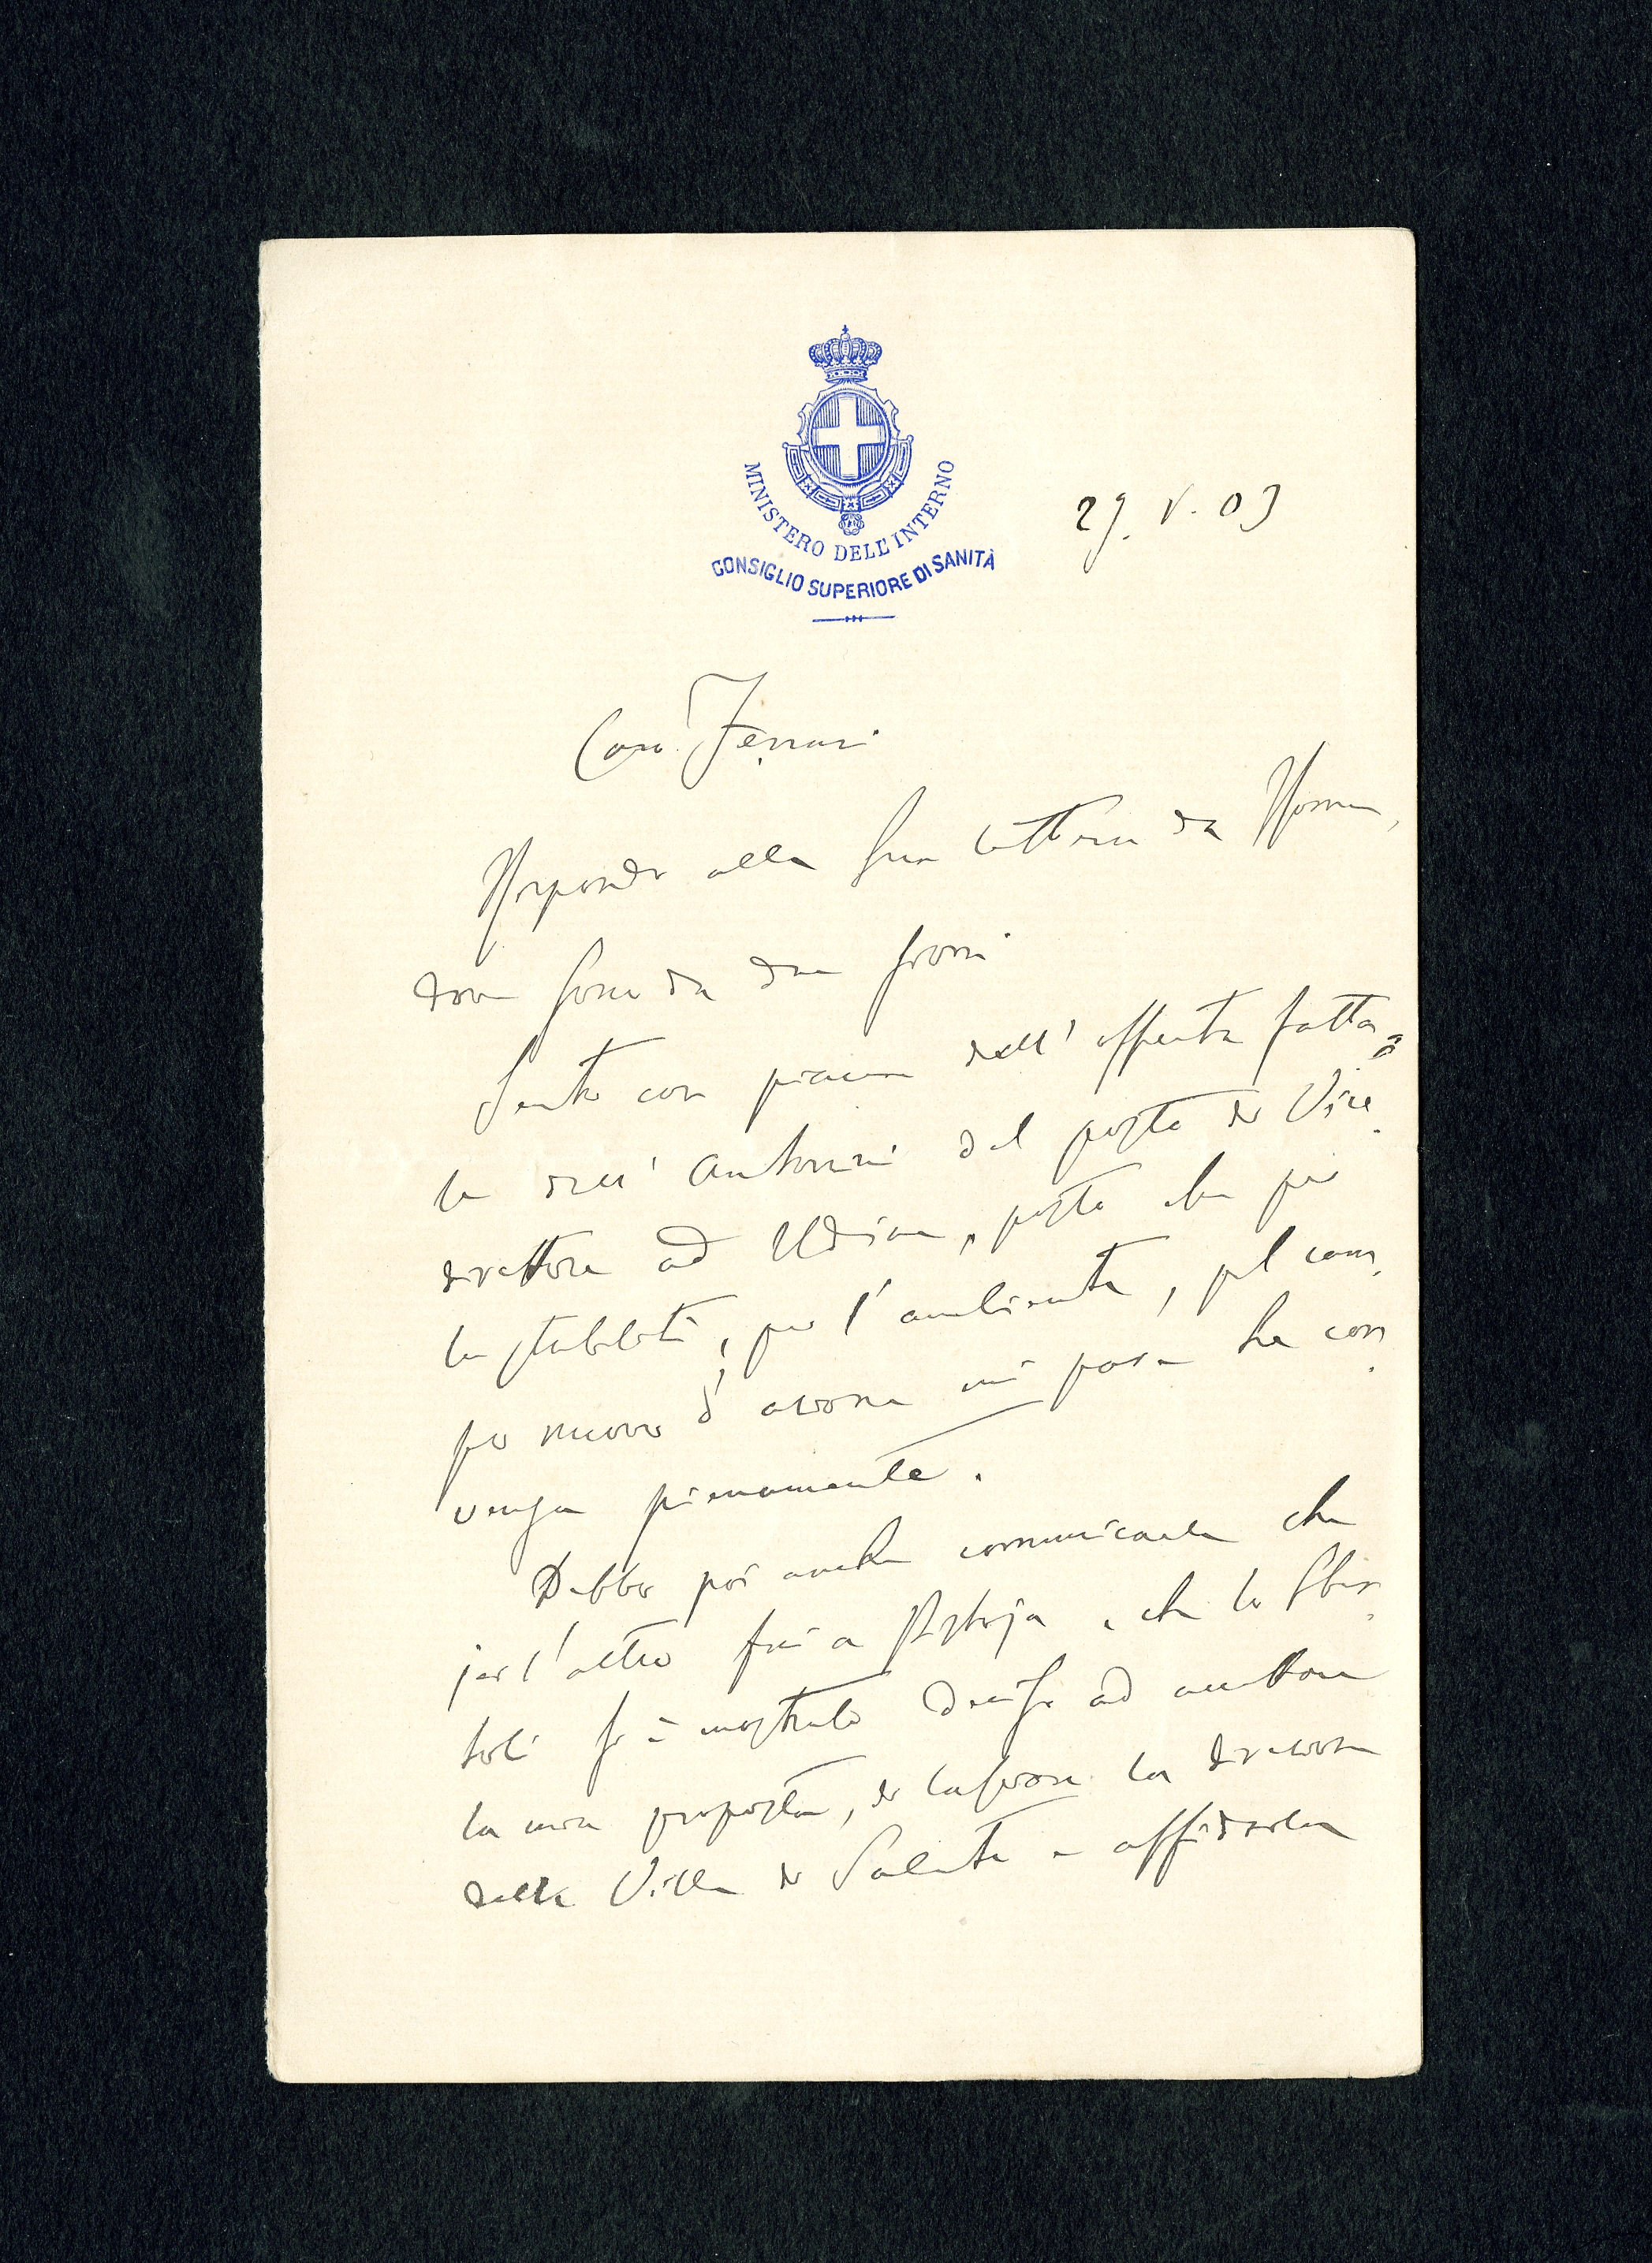 MINISTERO DELL'INTERNO
CONSIGLIO SUPERIORE DI SANITÀ
29. V. 03
Caro Ferrari
Rispondo alla Sua lettera da Roma,
dove sono da due giorni
Sento con piacere dell'offerta fatta
dell'Antonini del posto di Vice
direttore ad Udine, posto che per
la stabilità, per l'ambiente, pel cam
po nuovo d'azione mi pare Le con
venga pienamente.
Debbo poi anche comunicarle che
jer l'altro fui a Pistoja e che lo
si è mostrato deciso ad accettare
la mia proposta, di lasciare la direzione
della Villa di Salute e affidarla